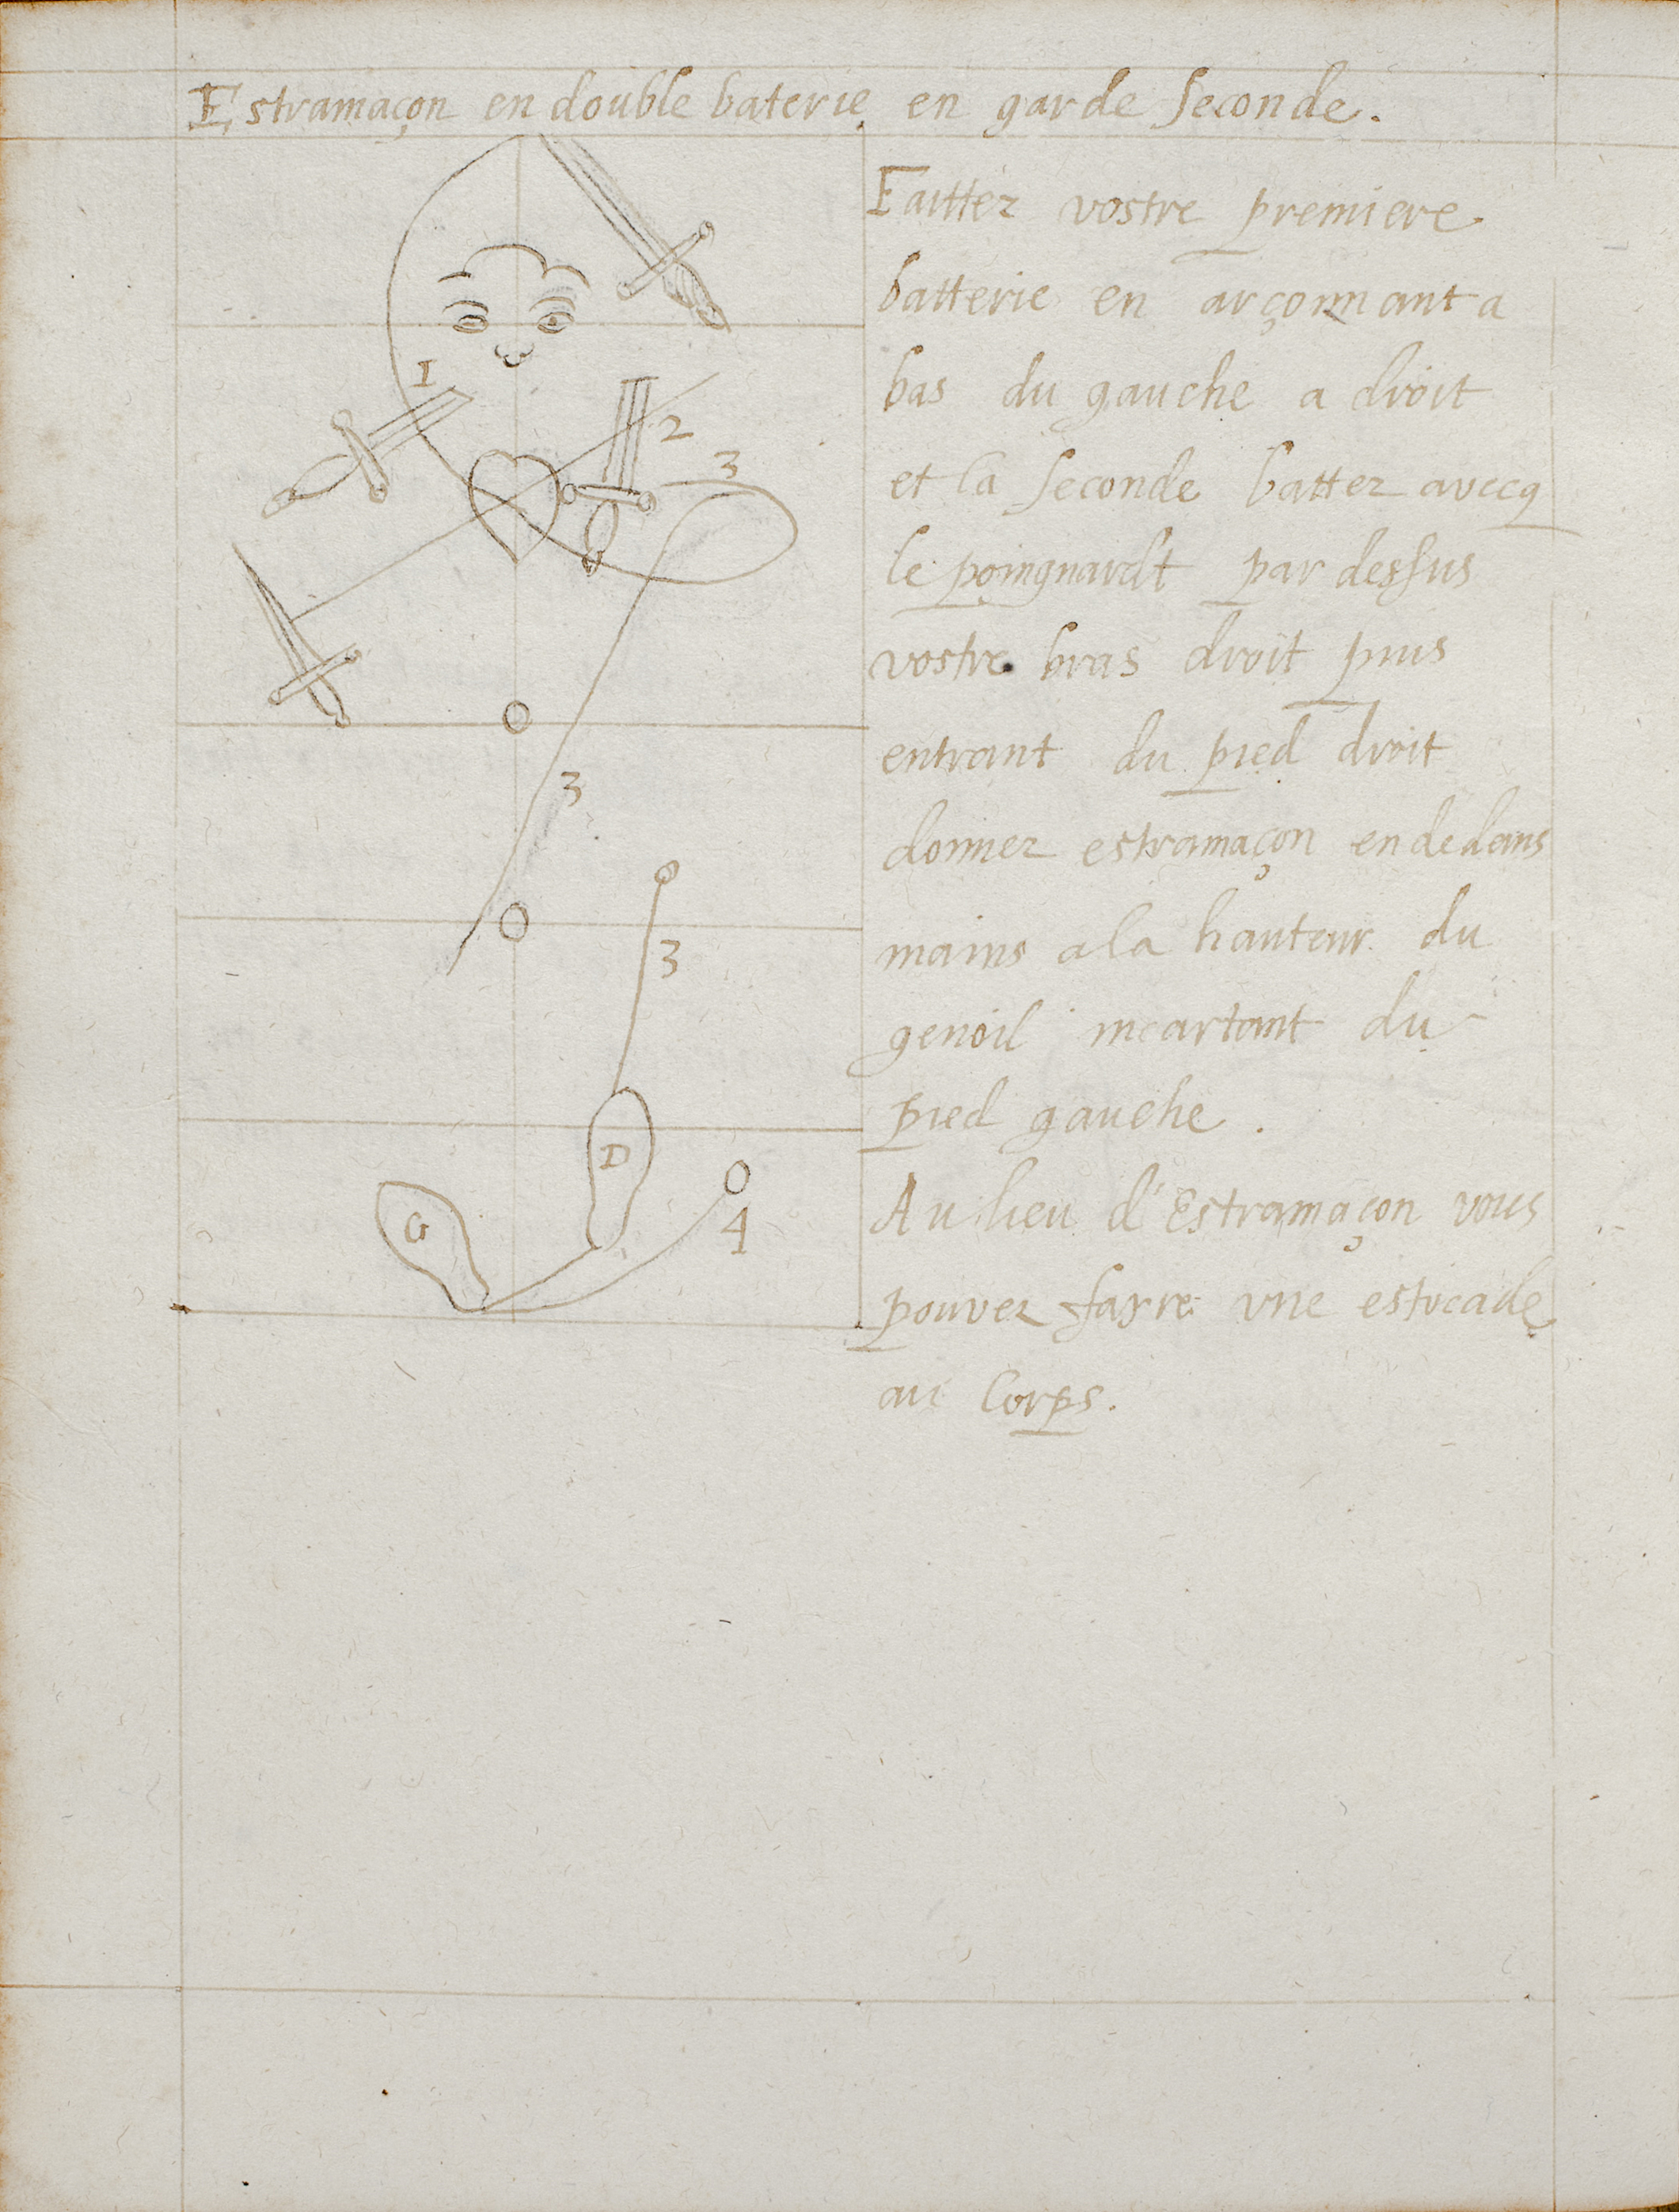 Estramaçon en double baterie en garde seconde.
Faittez vostre premiere
batterie en arçonnant a
bas du gauche a droit
et la seconde battez avecq
le poingnardt par dessus
vostre bras droit puis
entrant du pied droit
donnez estramaçon en dedans
mains a la hauteur du
genoil incartant du
pied gauche.
Au lieu d'Estramaçon vous
pouvez fayre une estocade
au Corps.
1
2
3
3
3
D
G
4